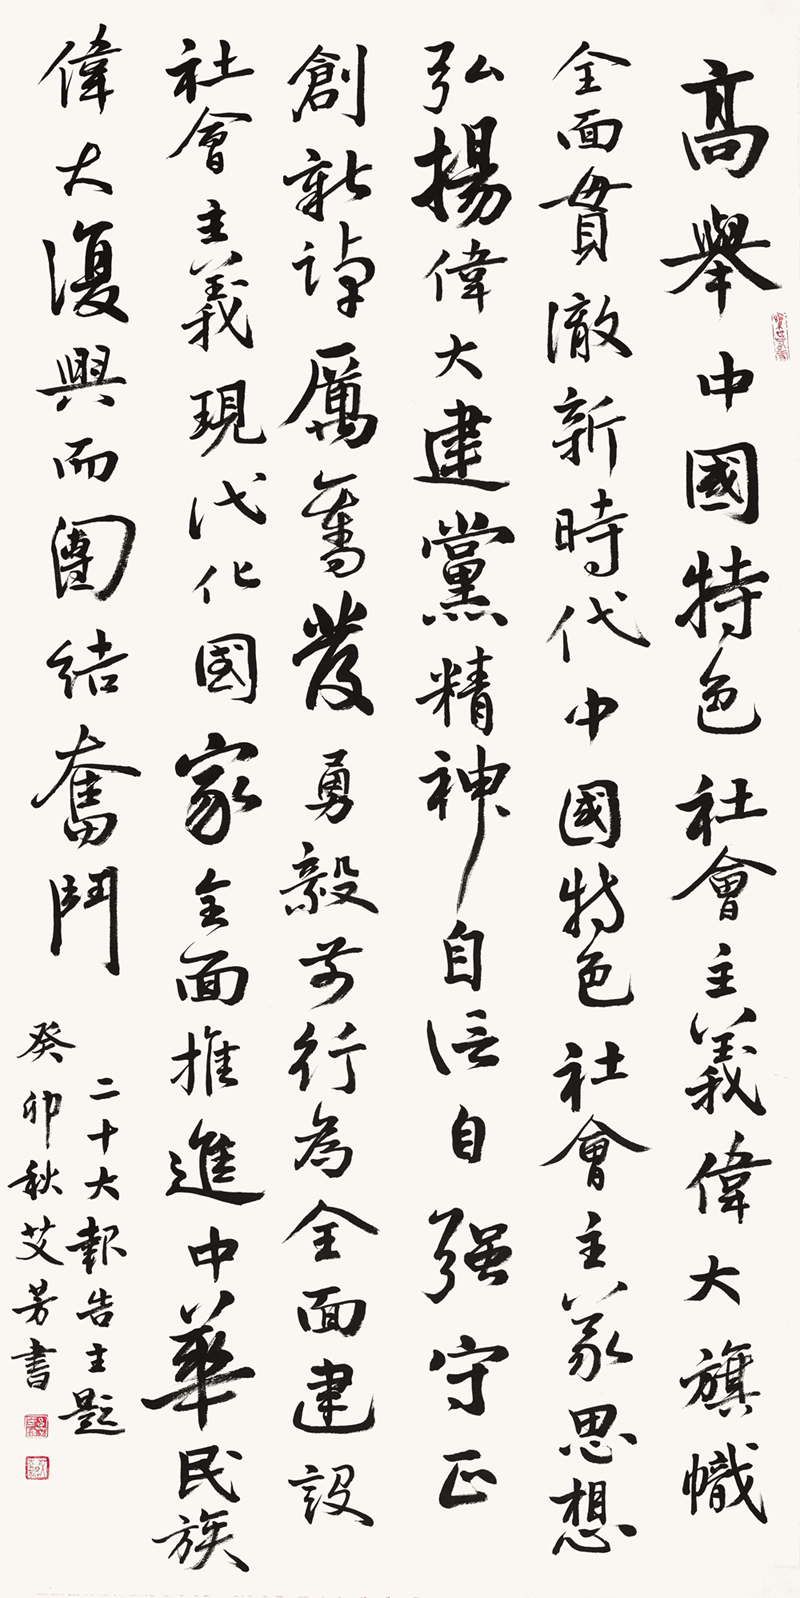 高舉中國特色社會主義偉大旗幟
全面貫徹新時代中國特色社會主義思想
弘揚偉大建黨精神自信自强守正
創新踔厲奮發勇毅前行為全面建設
社會主義現代化國家全面推進中華民族
偉大復興而團結奮鬥
二十大報告主題
癸卯秋艾芳書